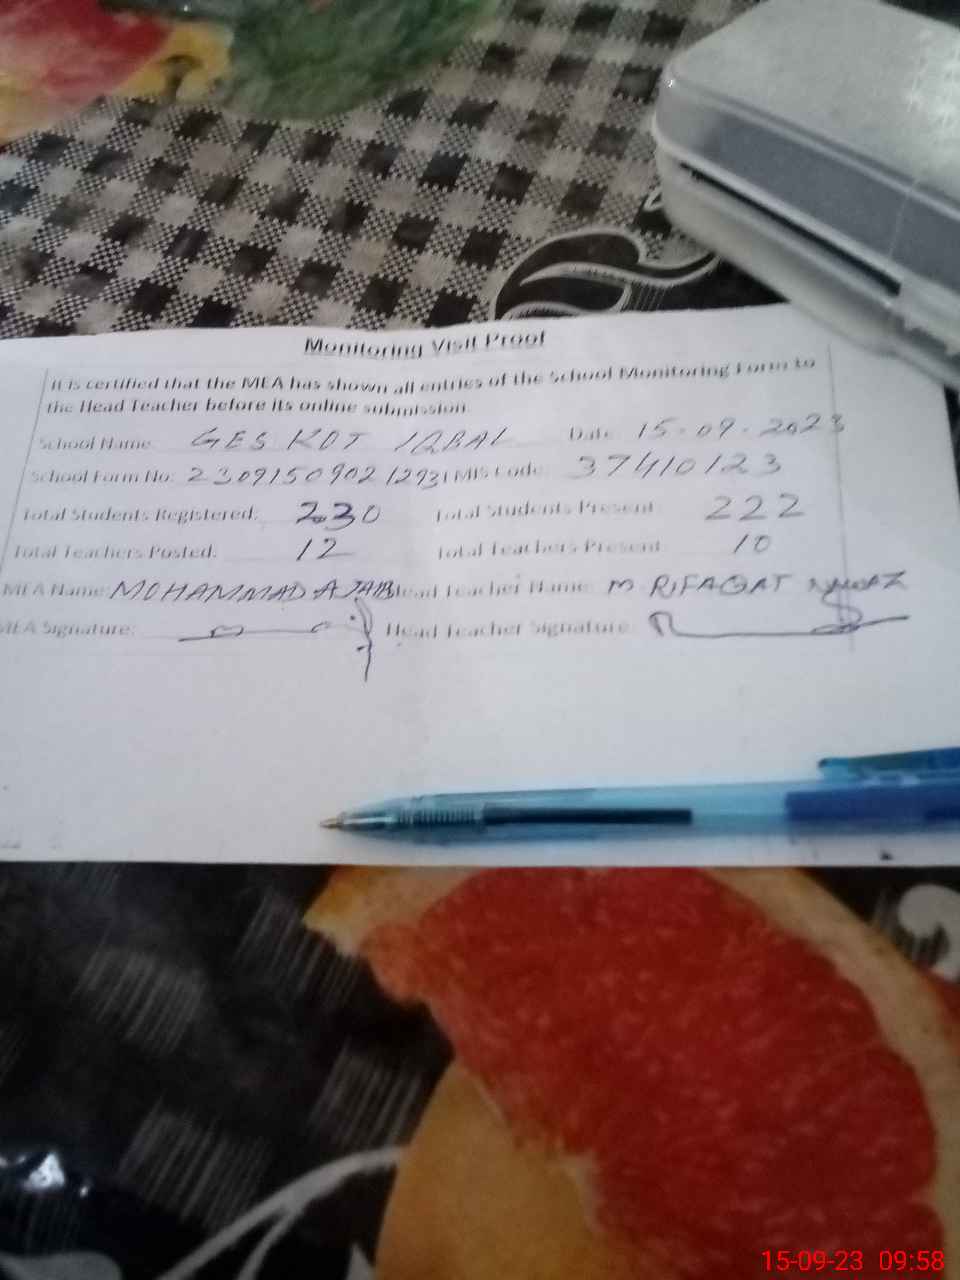 Monitoring Visit Proof
It is certified that the MEA has shown all entries of the School Monitoring Form to
the Head Teacher before its online submission.
School Name: GES KOT IQBAL Date: 15-09-2023
School Form No: 2309150902 1293 EMIS Code: 37410123
Total Students Registered: 230 Total Students Present: 222
Total Teachers Posted: 12 Total Teachers Present: 10
MEA Name: MOHAMMAD AJAIB Head Teacher Name: M RIFAQAT NAWAZ
MEA Signature: Head Teacher Signature:
15-09-23 09:58